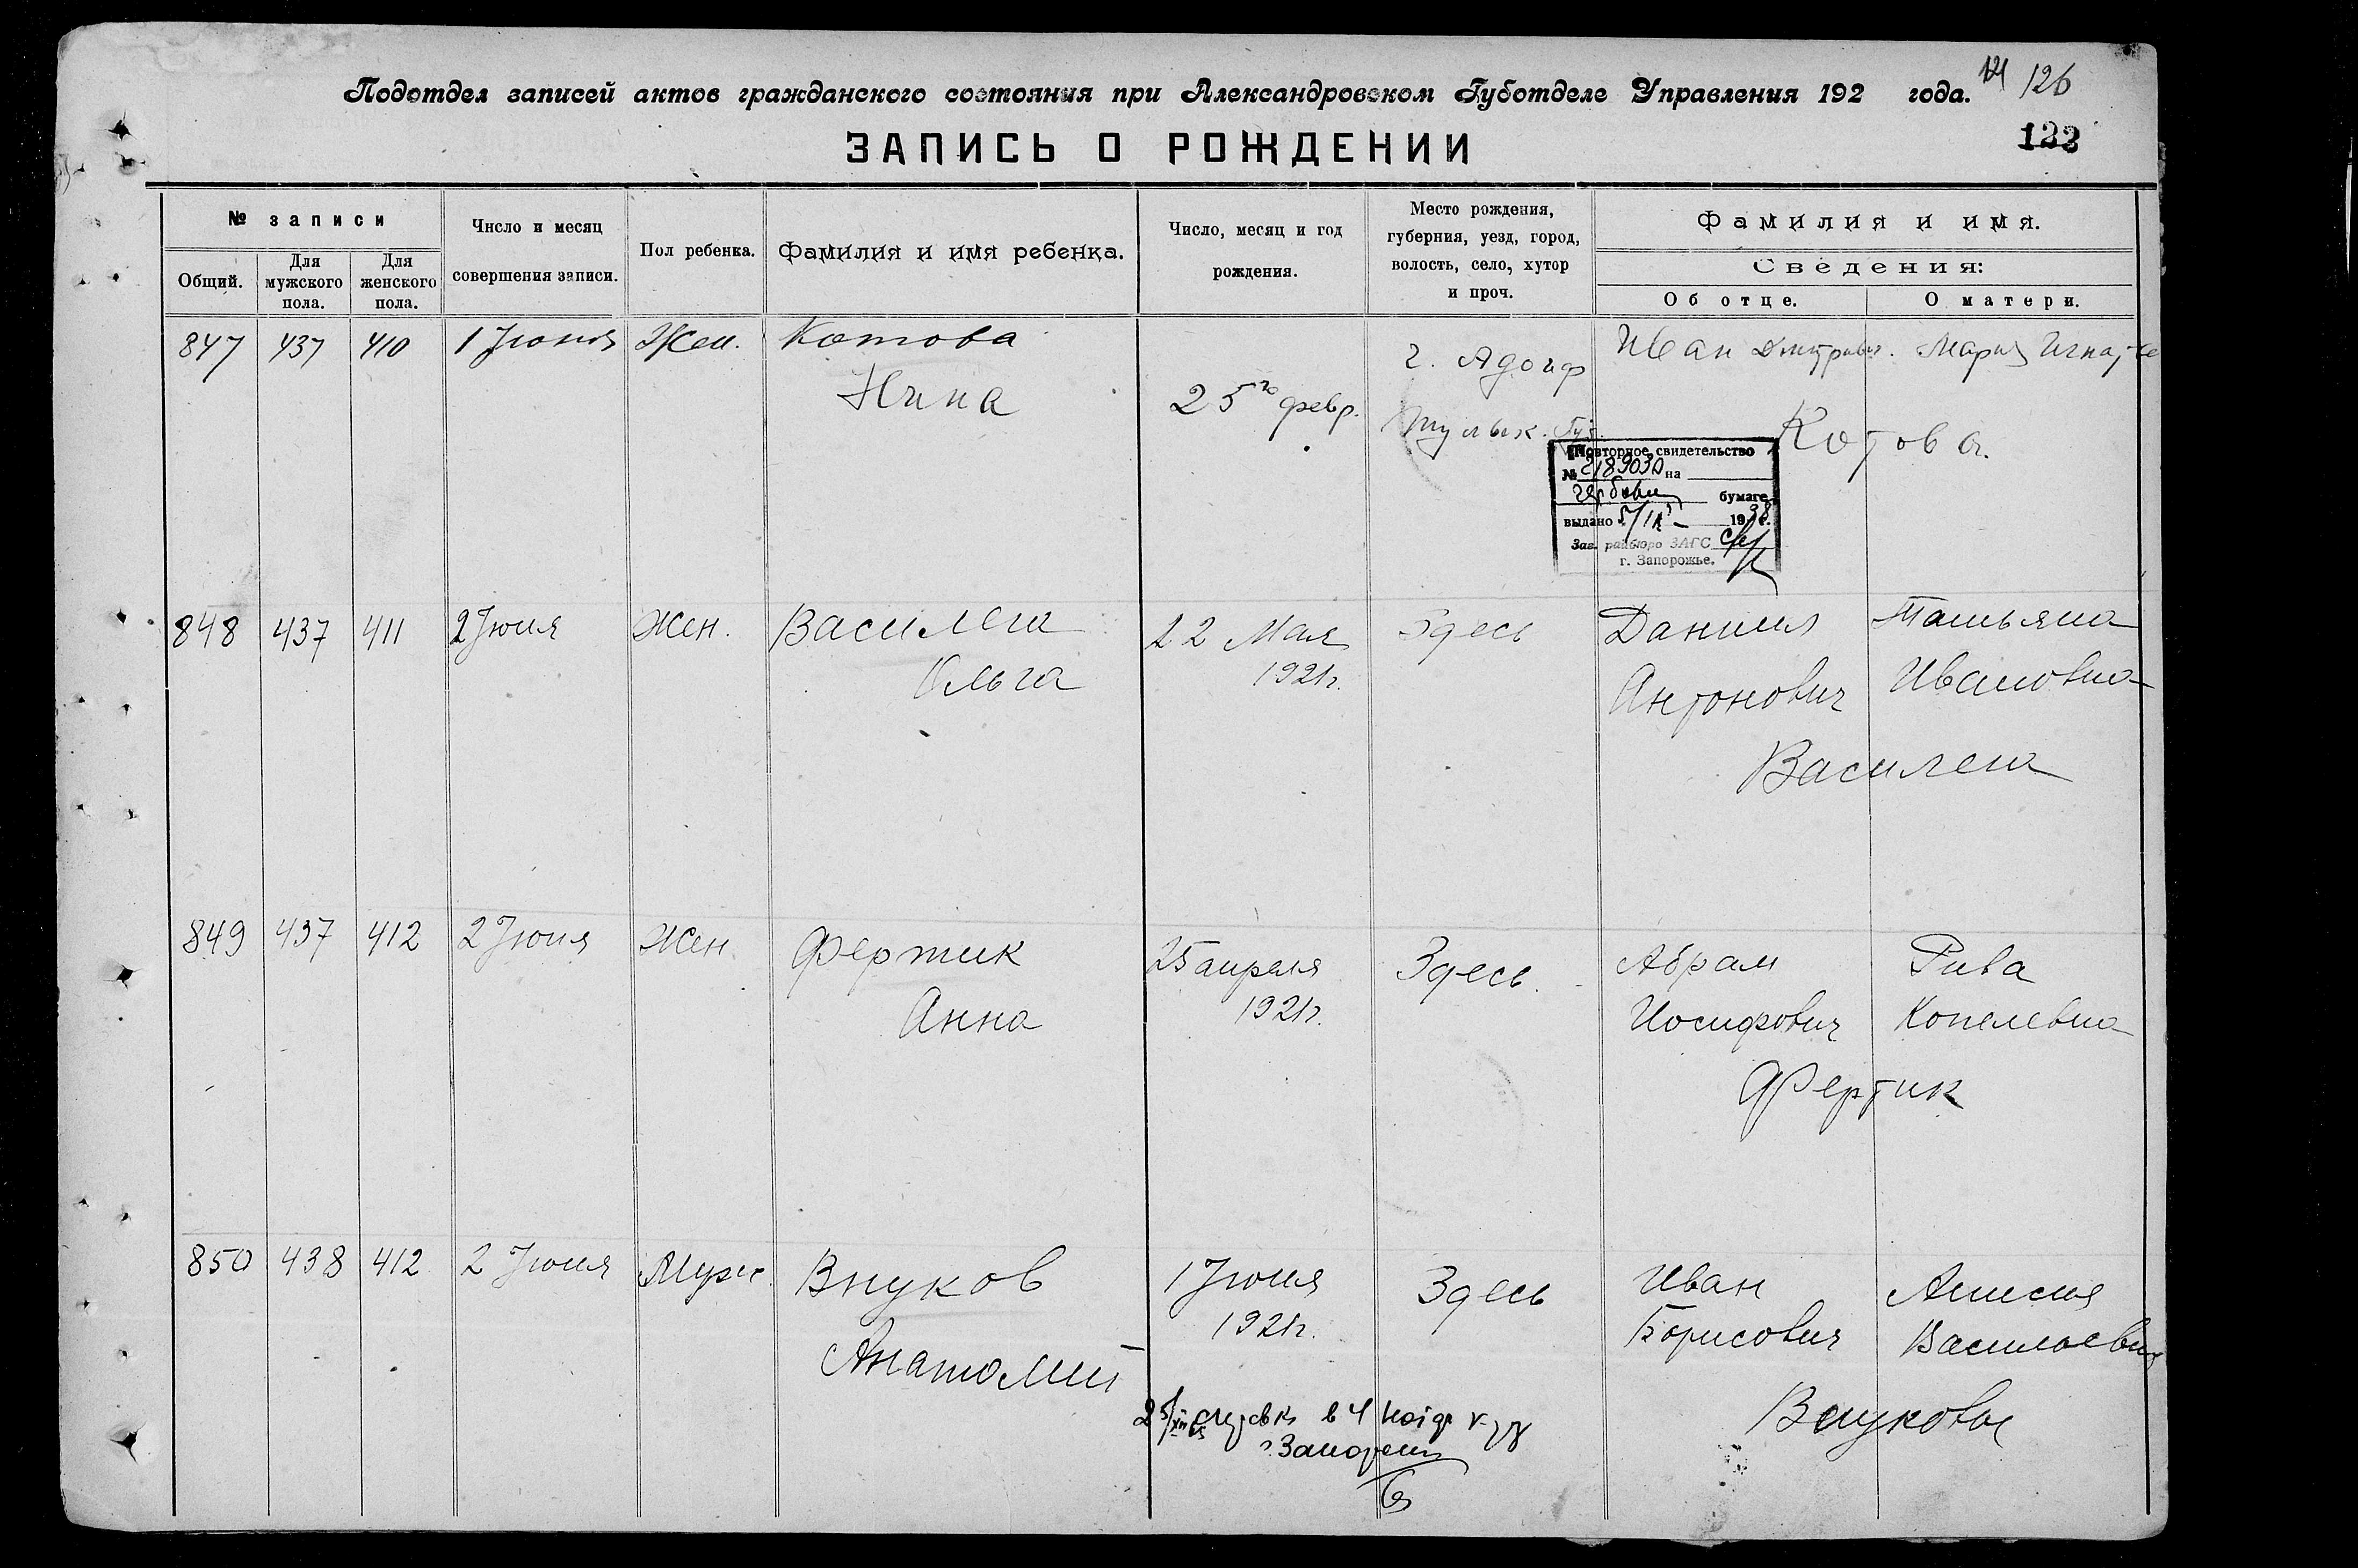 Подотдел записей актов гражданского состояния при Александровском Губотделе Управления 192 года.
126
ЗАПИСЬ О РОЖДЕНИИ
133
№ записи
Общий.
Для мужского пола.
Для женского пола.
Число и месяц совершения записи.
Пол ребенка.
Фамилия и имя ребенка.
Число, месяц и год рождения.
Место рождения, губерния, уезд, город, волость, село, хутор и проч.
Фамилия и имя.
Сведения:
Об отце.
О матери.
847 437 410 1 Июня Жен. Котова
Нина
25го февр.
Тульск. Губ.
Иван Дмитриевич. Мария
Котова.
Повторное свидетельство
№ на
бумаге
выдано 1938 г.
Зав. райбюро ЗАГС
г. Запорожье.
848 437 411 2 Июня Жен. Василега
Ольга
22 Мая
1921г.
Здесь
Даниил
Антонович
Татьяна
Ивановна
Василега
849 437 412 2 Июня Жен. Фертик
Анна
25 апреля
1921г.
Здесь.
Абрам
Иосифович
Рива
Копелевна
Фертик
850 438 412 2 Июня Муж. Внуков
Анатолий
1 Июня
1921г.
Здесь
Иван
Борисович
Анисия
Васильевна
Внуковы